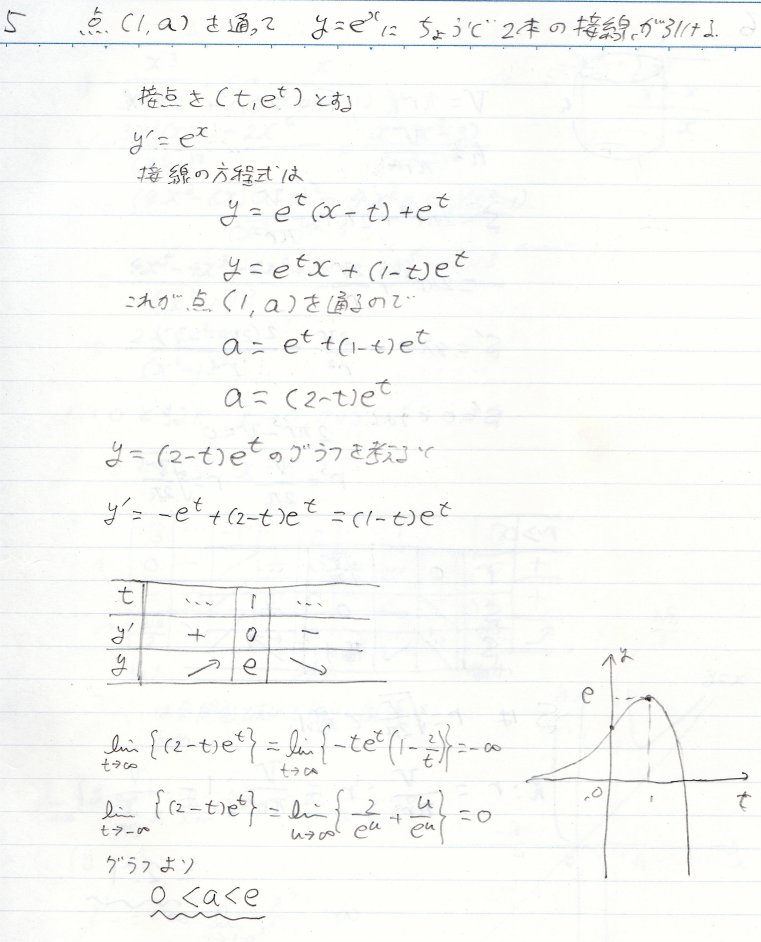 5 点(1,a)を通って y=e^xに ちょうど2本の接線が引ける
接点を(t,e^t)とする
y'=e^x
接線の方程式は
y=e^t(x-t)+e^t
y=e^t x+(1-t)e^t
これが点(1,a)を通るので
a=e^t+(1-t)e^t
a=(2-t)e^t
y=(2-t)e^tのグラフを考えると
y'=-e^t+(2-t)e^t=(1-t)e^t
t … 1 …
y' + 0 -
y ↗ e ↘
lim_{t→∞}{(2-t)e^t}=lim_{t→∞}{-te^t(1-2/t)}=-∞
lim_{t→-∞}{(2-t)e^t}=lim_{u→∞}{2/e^u+u/e^u}=0
グラフより
0<a<e
y
e
0 1 t